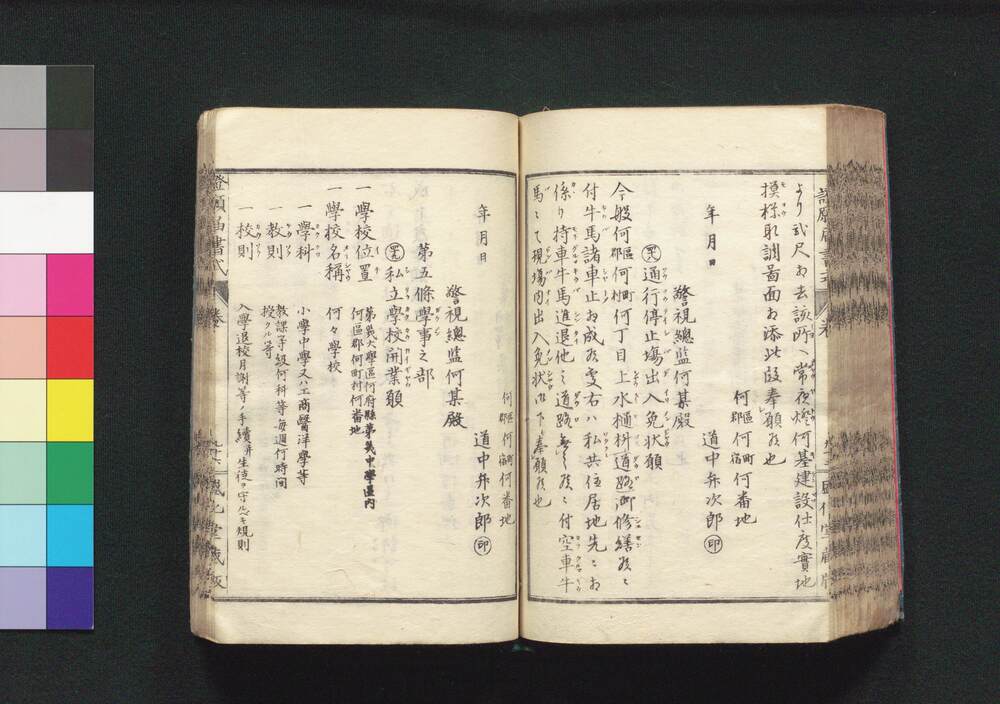 より弐尺ヲ去該所ヘ常夜燈何基建設仕度實地
摸様取調圖面ヲ添此段奉願候也
何區郡何町宿何番地
年月日
道中弁次郎㊞
警視總監何某殿
通行停止場出入免状願
今般何區郡何町村何丁目上水樋枡道路御修繕候ニ
付牛馬諸車止ヲ成候處右ハ私共住居地先ニヲ
係リ持車牛馬進退他之道路無之候ニ付空車牛
馬ニて現場内出入免状御下ヶ奉願候也
何區郡何町宿何番地
年月日
道中弁次郎㊞
警視總監何某殿
第五條學事之部
私立學校開業願
一學校位置
第幾大學區何府縣第幾中學區内
何區郡何町村何番地
一學校名稱
何々學校
一學科
小學中學又ハ工商醫洋學等
一教則
教課ノ等級何科等毎週何時間
授クル等
一校則
入學退校月謝等ノ手續并生徒ヲ守ルヘキ規則